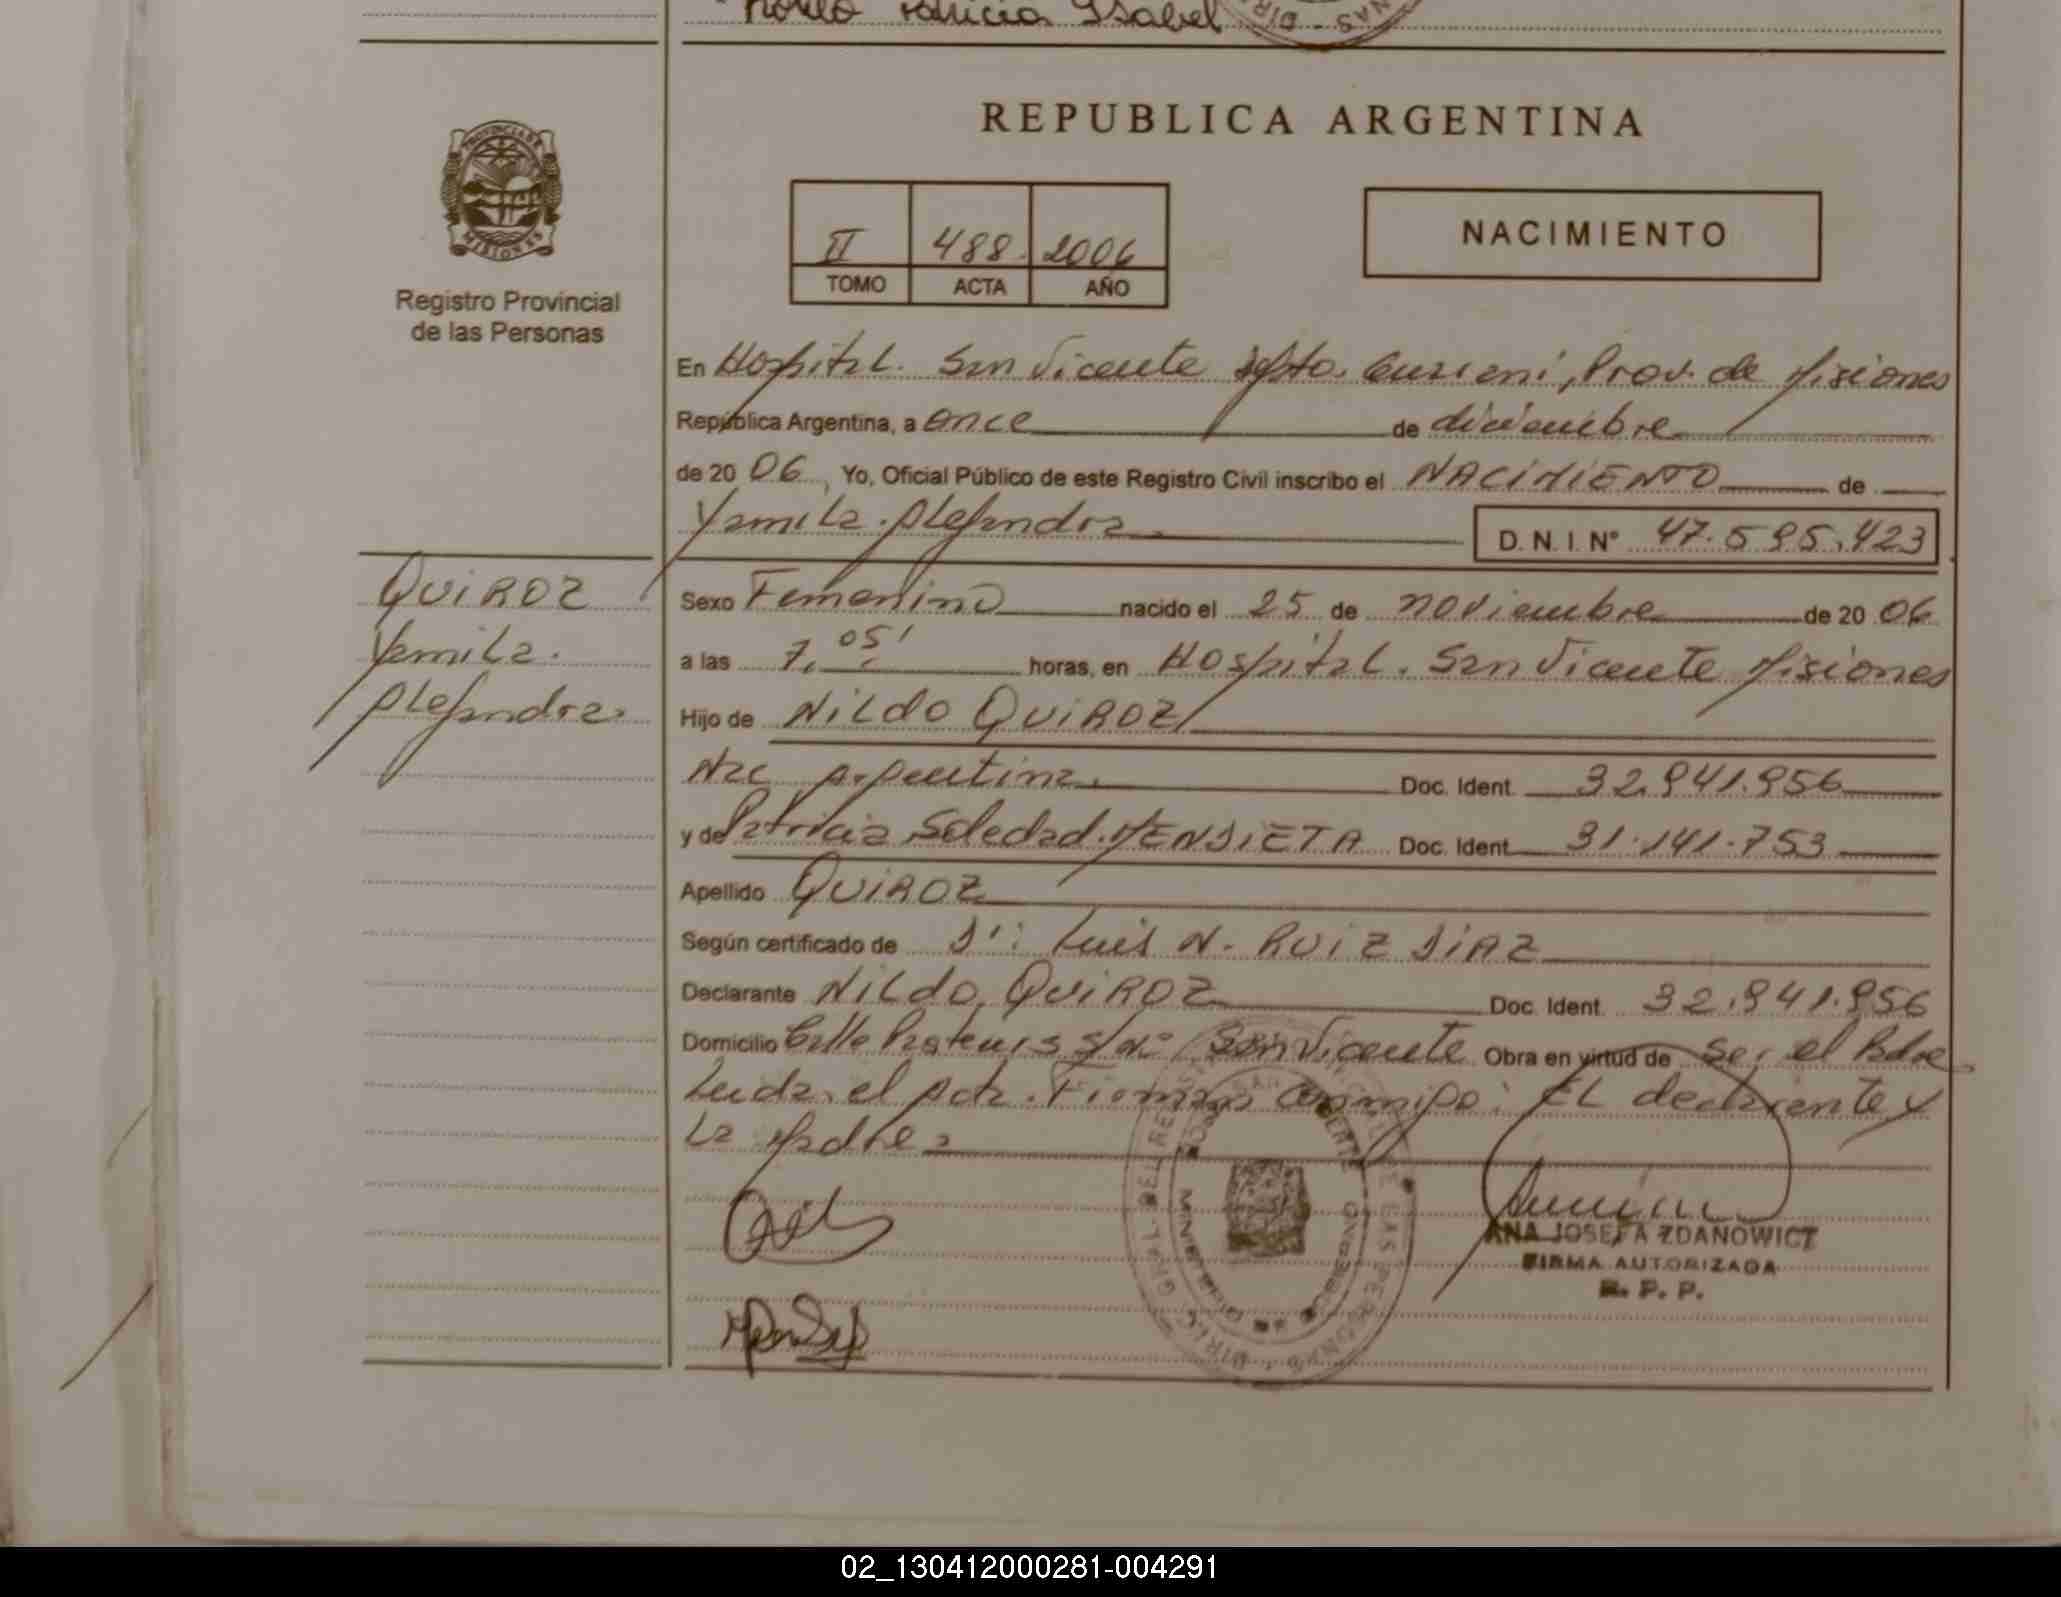 Patricia Isabel
REPUBLICA ARGENTINA
PROVINCIA DE
MISIONES
Registro Provincial
de las Personas
II 488 2006
TOMO ACTA AÑO
NACIMIENTO
En Hospital. San Vicente Dpto. Guarani, Prov. de Misiones
República Argentina, a once de diciembre
de 20 06, Yo, Oficial Público de este Registro Civil inscribo el NACIMIENTO de
Yamila Alejandra
D.N.I. N° 47.595.423
QUIROZ
Yamila
Alejandra
Sexo Femenino nacido el 25 de noviembre de 20 06
a las 7,05' horas, en Hospital. San Vicente Misiones
Hijo de Nildo QUIROZ
Nac Argentina Doc. Ident. 32.941.956
y de Patricia Soledad MENDIETA Doc. Ident. 31.141.753
Apellido QUIROZ
Según certificado de Dr: Luis N. RUIZ DIAZ
Declarante Nildo QUIROZ Doc. Ident. 32.941.956
Domicilio Calle s/n° San Vicente Obra en virtud de ser el Padre
Leida el Acta. Firman conmigo: El declarante y
La Madre
ANA JOSEFA ZDANOWICZ
FIRMA AUTORIZADA
R. P. P.
02_130412000281-004291